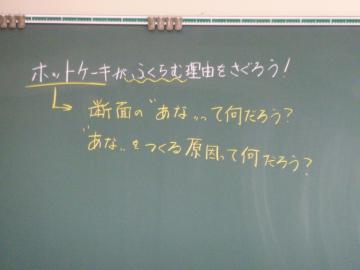 ホットケーキが、ふくらむ理由をさぐろう!
断面の"あな"って何だろう?
"あな"をつくる原因って何だろう?